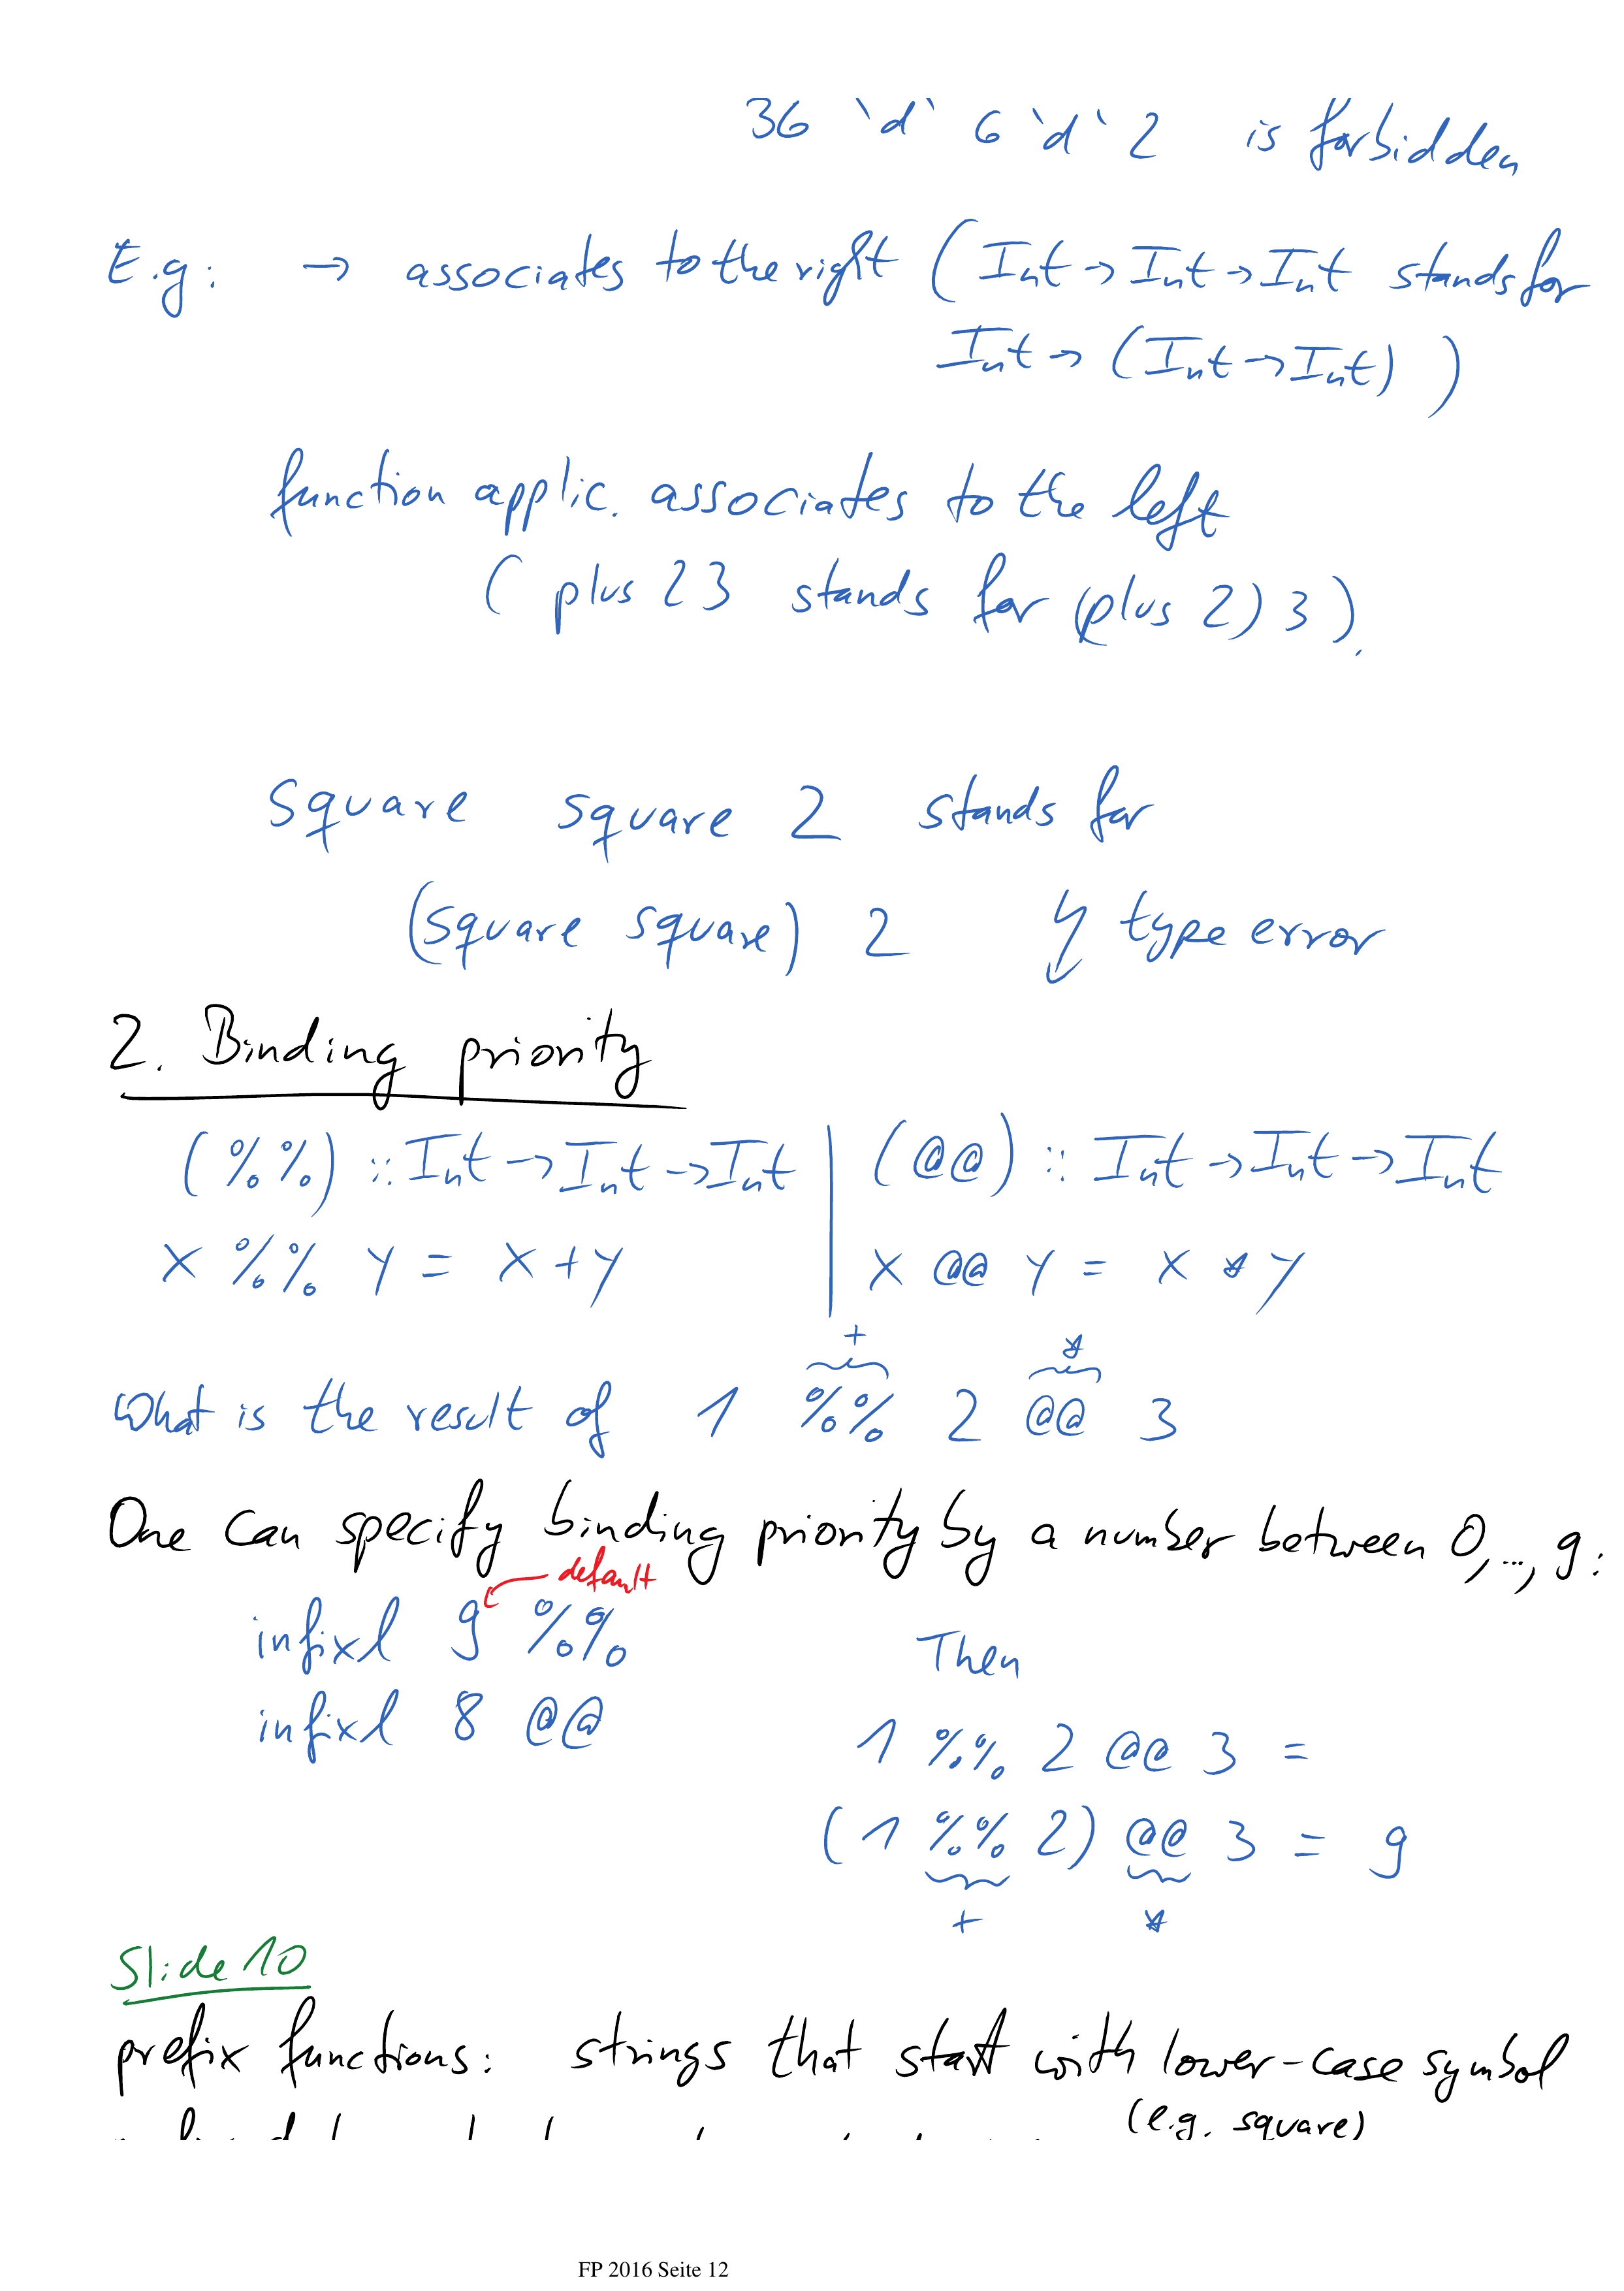 36 `d` 6 `d` 2 is forbidden
E.g: → associates to the right (Int → Int → Int stands for
Int → (Int → Int) )
function applic. associates to the left
( plus 2 3 stands for (plus 2) 3 ).
square square 2 stands for
(square square) 2 ↯ type error
2. Binding priority
(%%) :: Int → Int → Int | (@@) :: Int → Int → Int
x %% y = x + y | x @@ y = x * y
+ *
What is the result of 1 %% 2 @@ 3
One can specify binding priority by a number between 0,..., 9:
default
infixl 9 %%
Then
infixl 8 @@
1 %% 2 @@ 3 =
(1 %% 2) @@ 3 = 9
+ *
Slide 10
prefix functions: strings that start with lower-case symbol
(e.g. square)
FP 2016 Seite 12